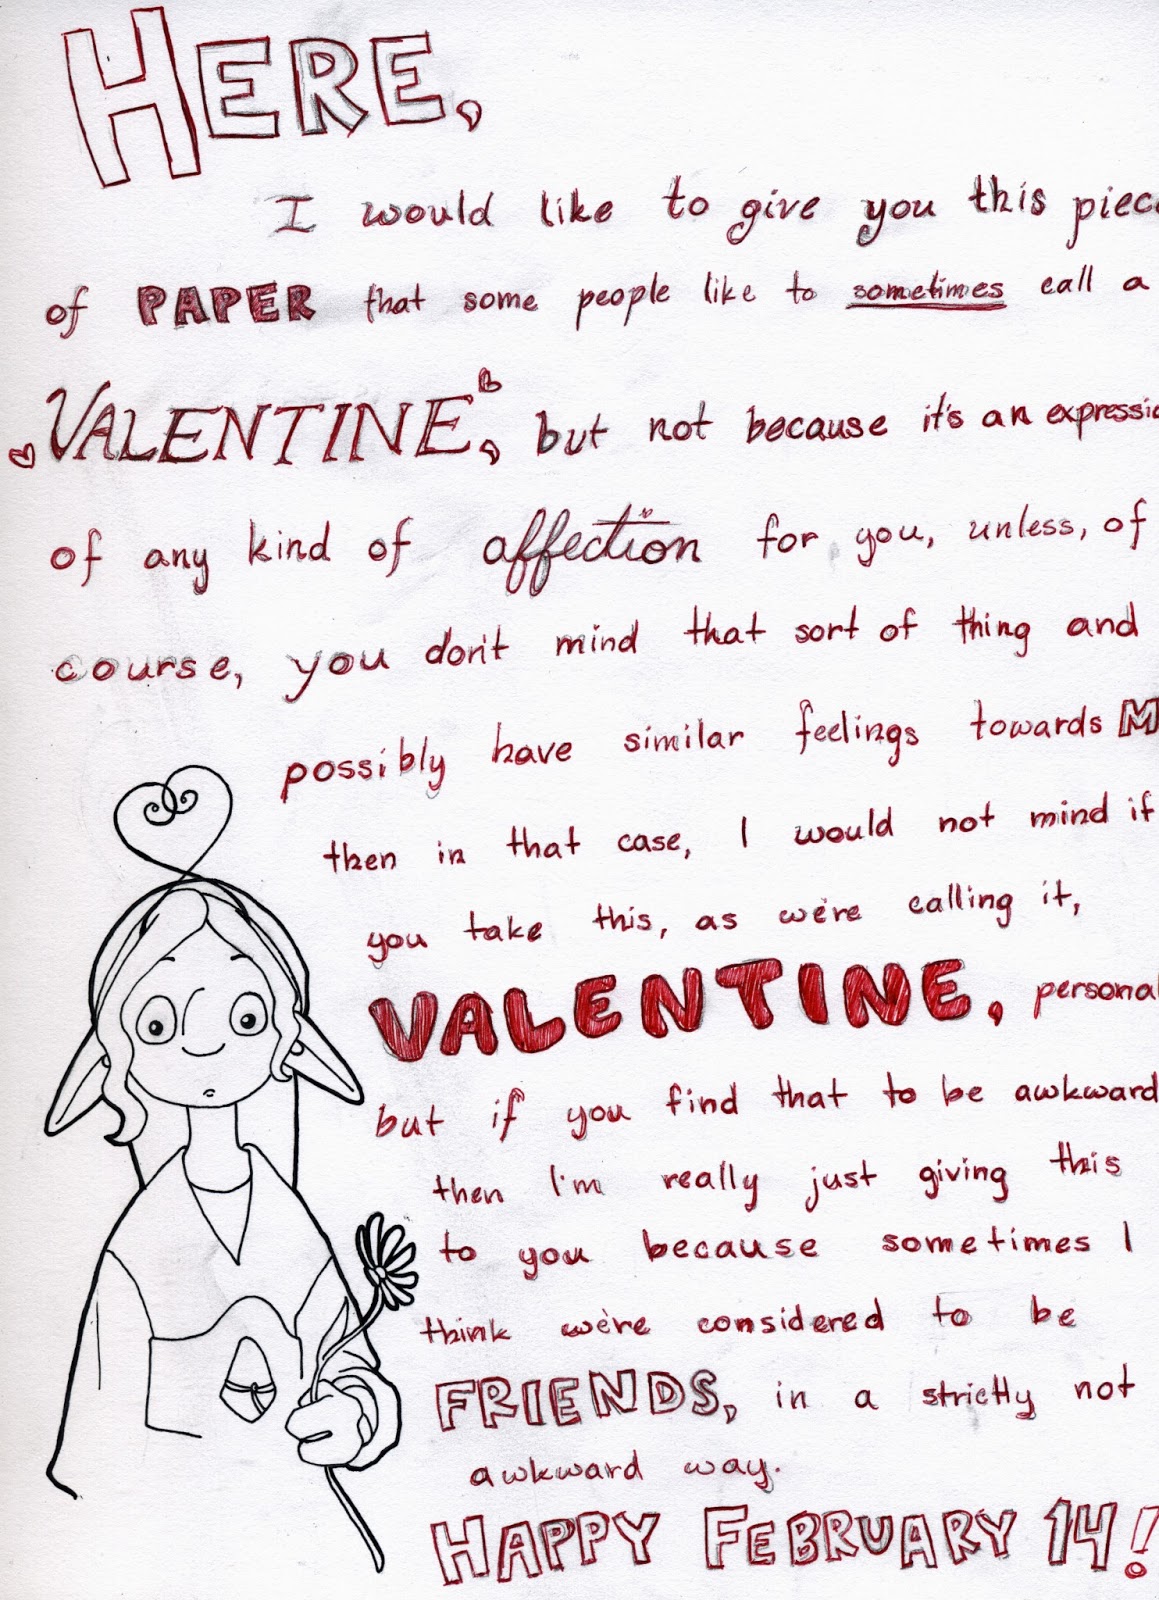 HERE,
I would like to give you this piec
of PAPER that some people like to sometimes call a
VALENTINE, but not because it's an expressi
of any kind of affection for you, unless, of
course, you don't mind that sort of thing and
possibly have similar feelings towards M
then in that case, I would not mind if
you take this, as we're calling it,
VALENTINE, personal
but if you find that to be awkward
then I'm really just giving this
to you because sometimes I
think we're considered to be
FRIENDS, in a strictly not
awkward way.
HAPPY FEBRUARY 14!